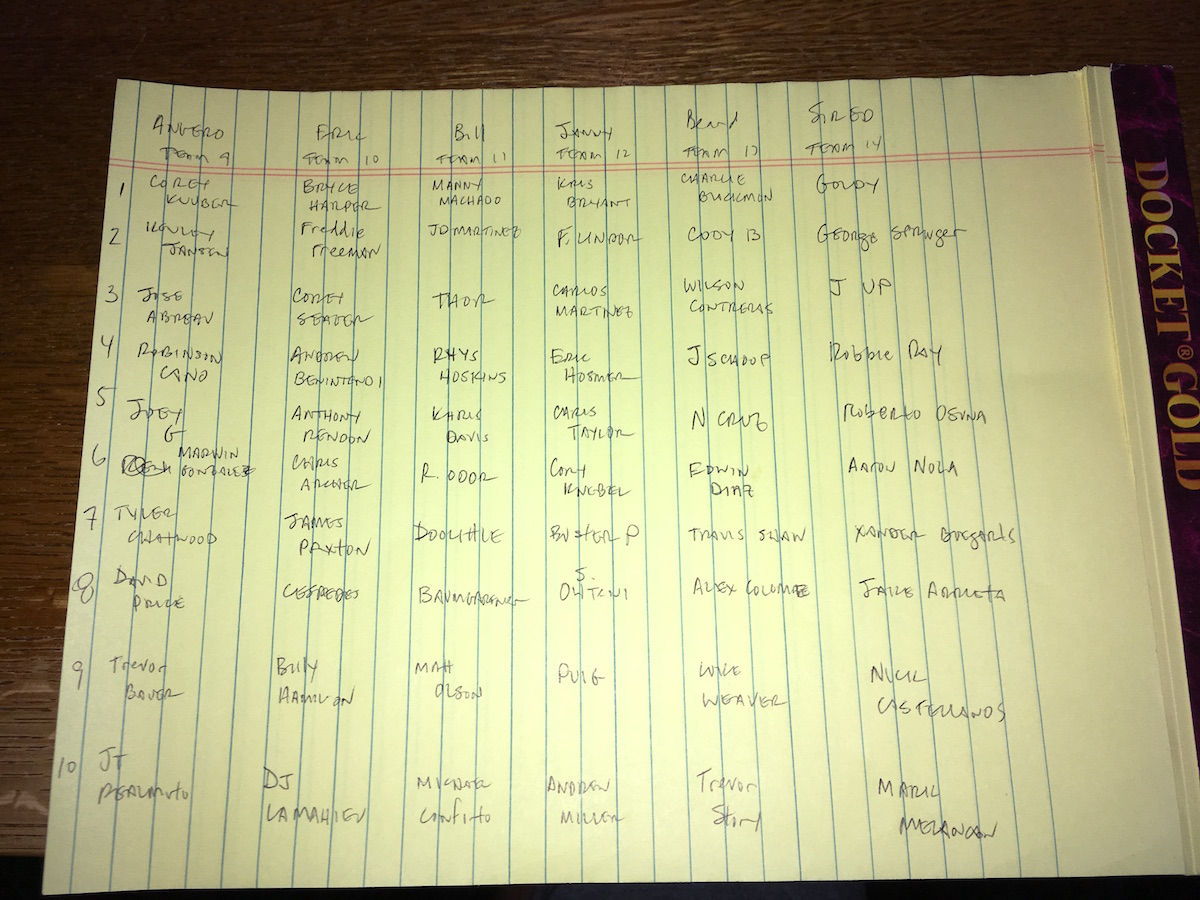 ANGERO ERIC Bill JANNY Brand SIRED
TEAM 9 TEAM 10 TEAM 11 TEAM 12 TEAM 13 TEAM 14
1 COREY BRYCE MANNY KRIS CHARLIE GOLDY
KLUBER HARPER MACHADO BRYANT BLACKMON
2 KENLEY Freddie JD MARTINEZ F. LINDOR CODY B GEORGE SPRINGER
JANSEN FREEMAN
3 JOSE COREY THOR CARLOS WILSON J UP
ABREAU SEAGER MARTINEZ CONTRERAS
4 ROBINSON ANDREW RHYS ERIC J SCHOOP Robbie RAY
CANO BENINTENDI HOSKINS HOSMER
5 JOEY ANTHONY KHRIS CHRIS N CRUZ ROBERTO OSUNA
G RENDON DAVIS TAYLOR
6 MARWIN CHRIS R. ODOR CORY EDWIN AARON NOLA
GONZALEZ ARCHER KNEBEL DIAZ
7 TYLER JAMES DOOLITTLE BUSTER P TRAVIS SHAW XANDER BOEGARTS
CHATWOOD PAXTON
8 DAVID CESPEDES BAUMGARENER S. ALEX COLOME JAKE ARRIETA
PRICE OHTANI
9 Trevor Billy MATT PUIG LUKE NICK
BAUER HAMILTON OLSON WEAVER CASTELLANOS
10 JT DJ MICHAEL ANDREW Trevor MARK
REALMUTO LAMAHIEU CONFITTO MILLER Story MELANCON
DOCKET® GOLD